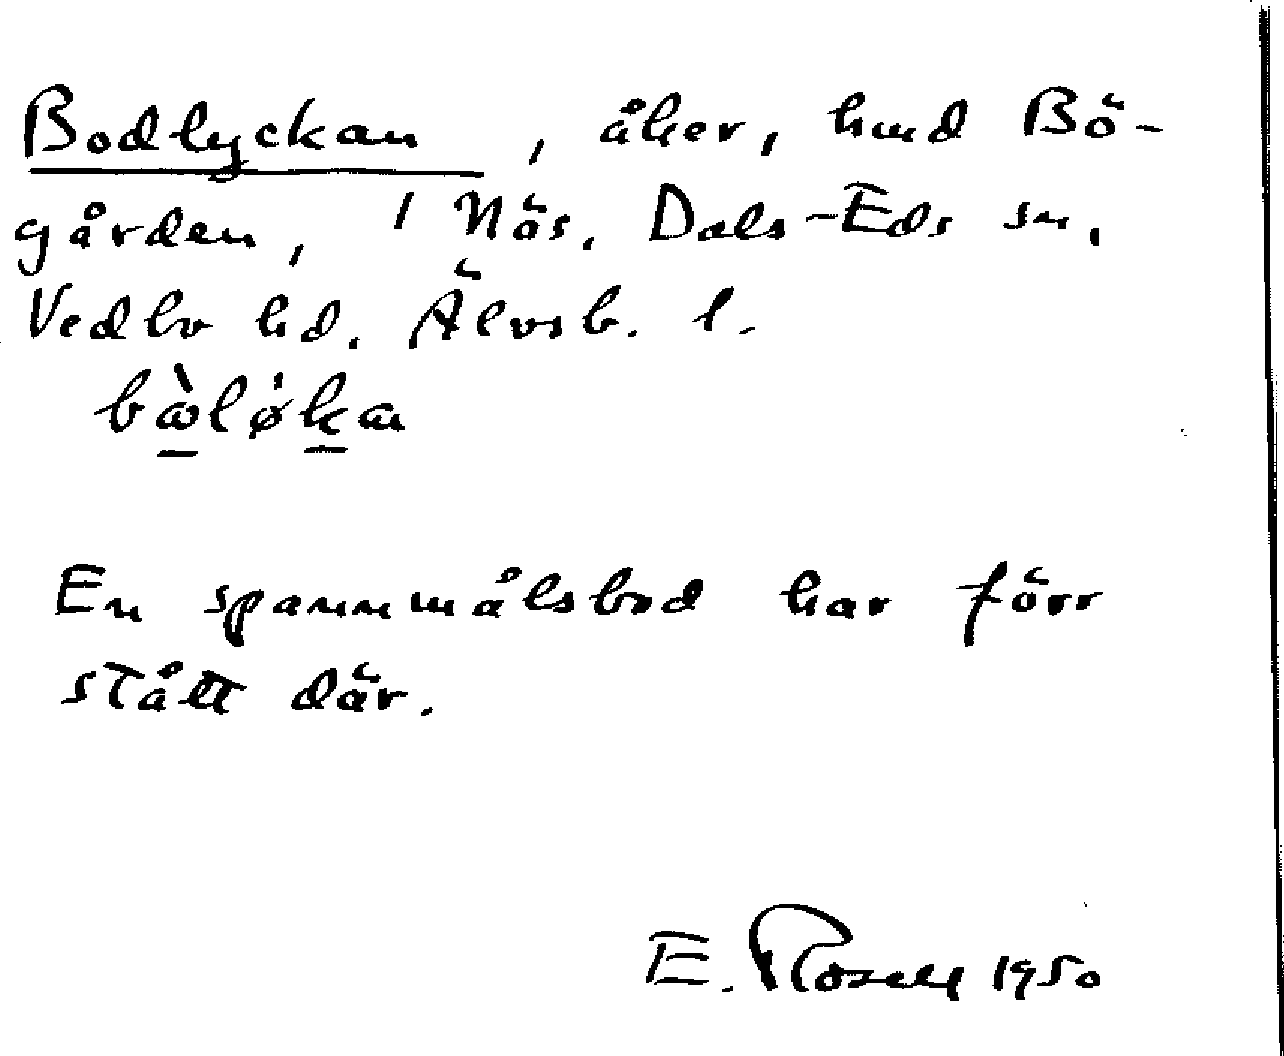 Bodlyckan, åker, hmd Bö-
gården, 1 Näs. Dals-Eds sn,
Vedbo hd. Älvsb. l.
En spannmålsbod har förr
stått där.
E. Rosell 1950